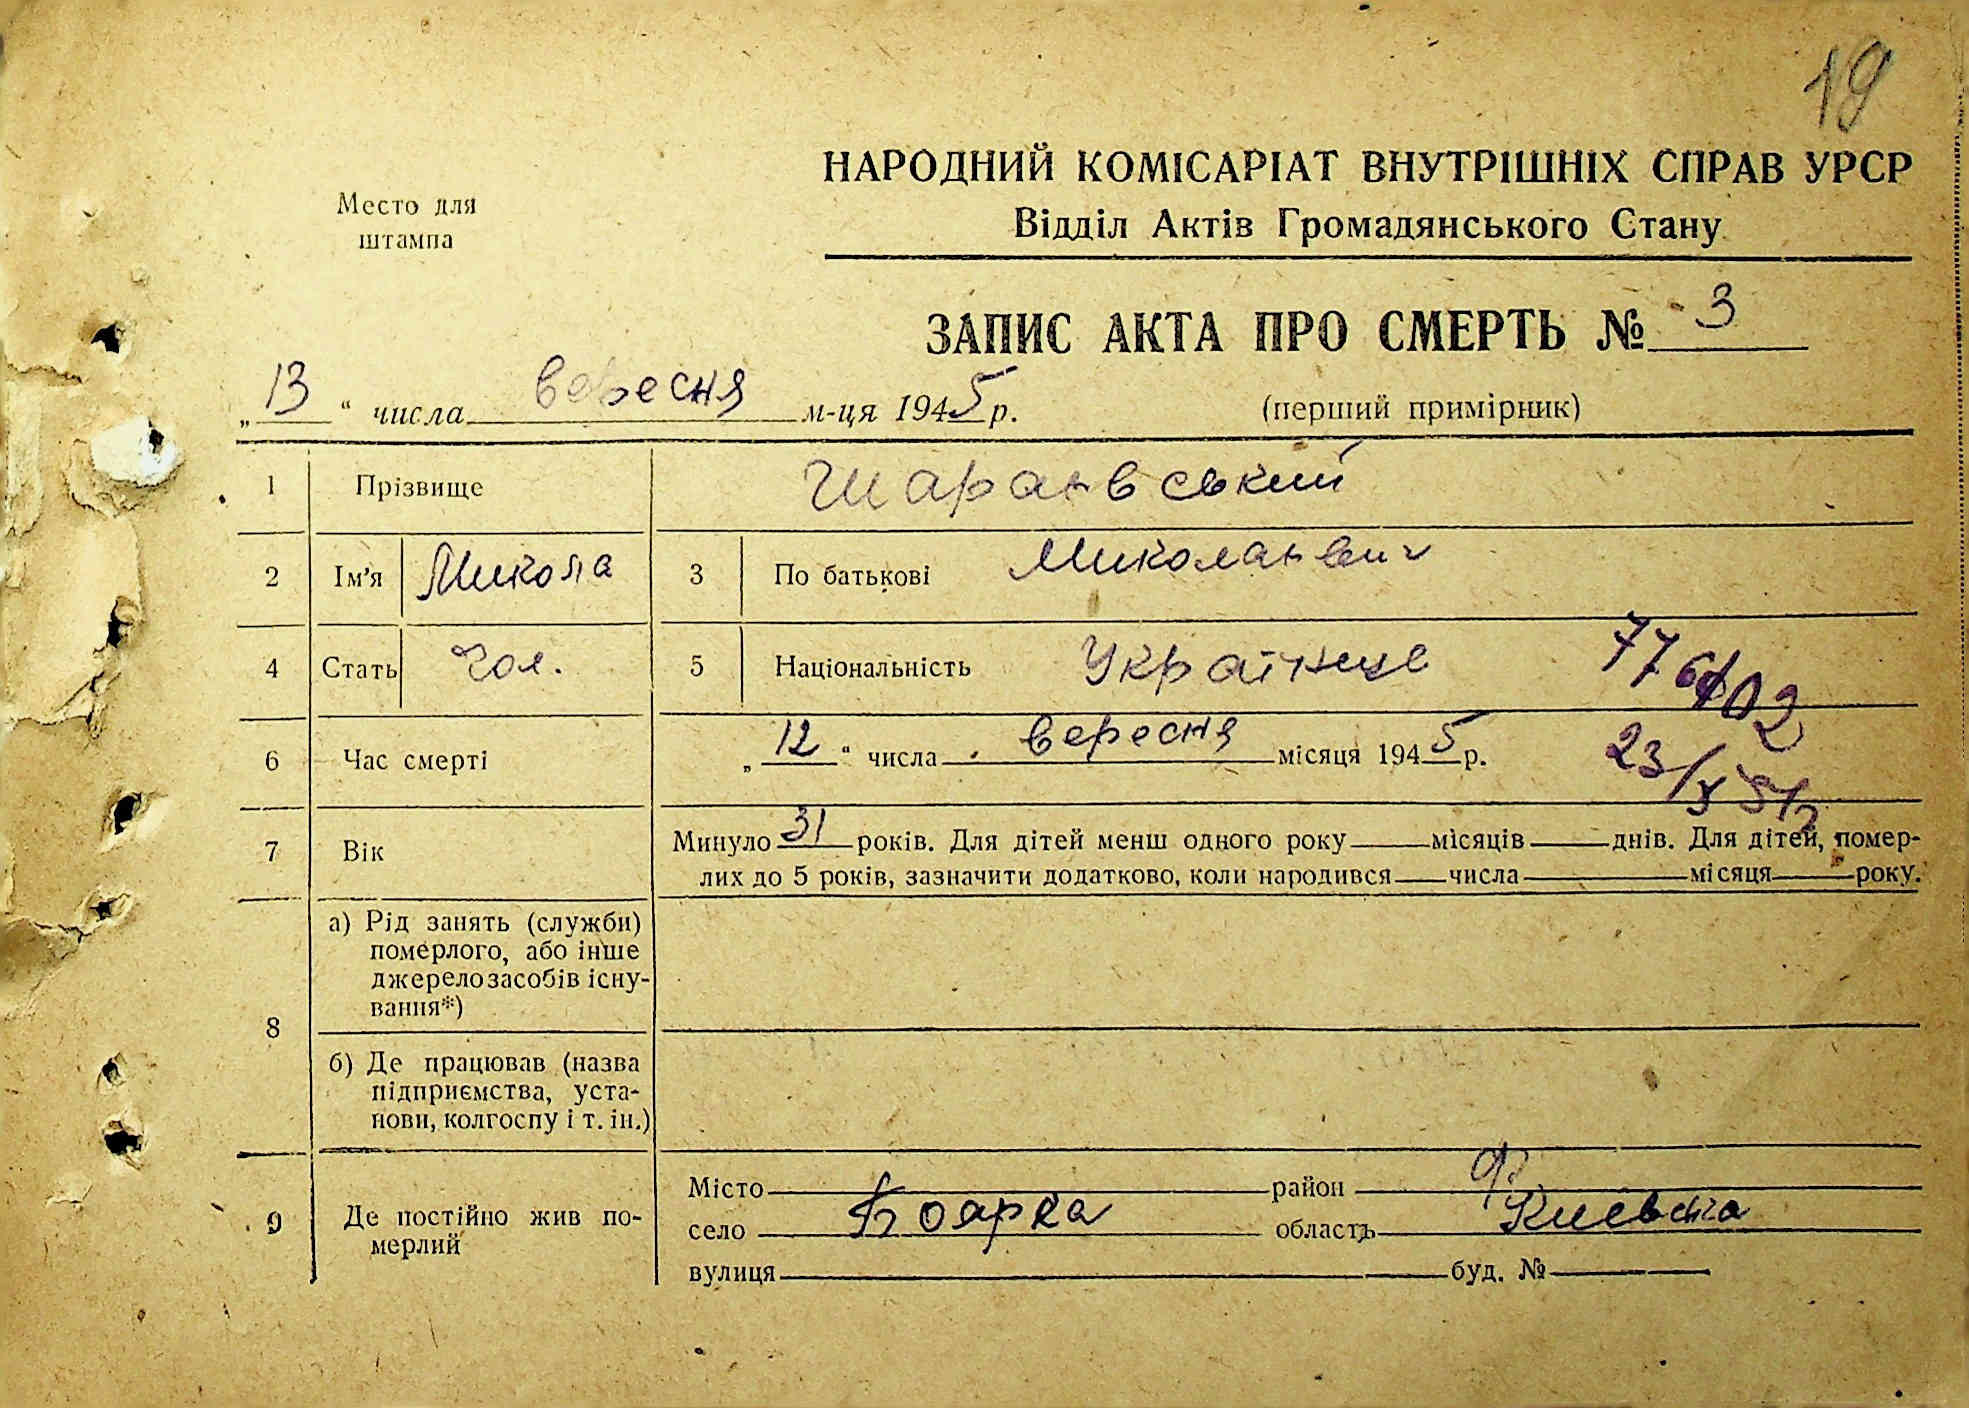 19
НАРОДНИЙ КОМІСАРІАТ ВНУТРІШНІХ СПРАВ УРСР
Відділ Актів Громадянського Стану
Место для
штампа
ЗАПИС АКТА ПРО СМЕРТЬ № 3
„13“ числа вересня м-ця 1945 р.
(перший примірник)
1 Прізвище Шараєвський
2 Ім'я Микола 3 По батькові Миколаєвич
4 Стать Чол. 5 Національність Українець
6 Час смерті „12“ числа вересня місяця 1945 р.
23/X
7 Вік Минуло 31 років. Для дітей менш одного року місяців днів. Для дітей, помер-
лих до 5 років, зазначити додатково, коли народився числа місяця року.
8 а) Рід занять (служби)
померлого, або інше
джерело засобів існу-
вання*)
б) Де працював (назва
підприємства, уста-
нови, колгоспу і т. ін.)
9 Де постійно жив по-
мерлий
Місто район
село Боярка область Київська
вулиця буд. №